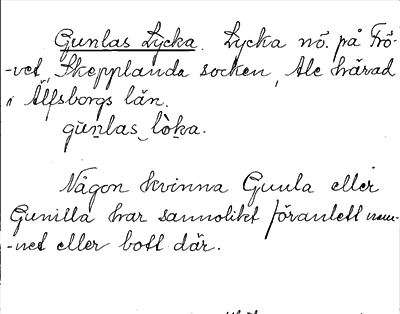 Gunlas Lycka. Lycka nö. på Frö-
-vet, Skepplanda socken, Ale härad
i Älfsborgs län.
gùnlas lòka.
Någon kvinna Gunla eller
Gunilla har sannolikt föranlett nam-
-net eller bott där.